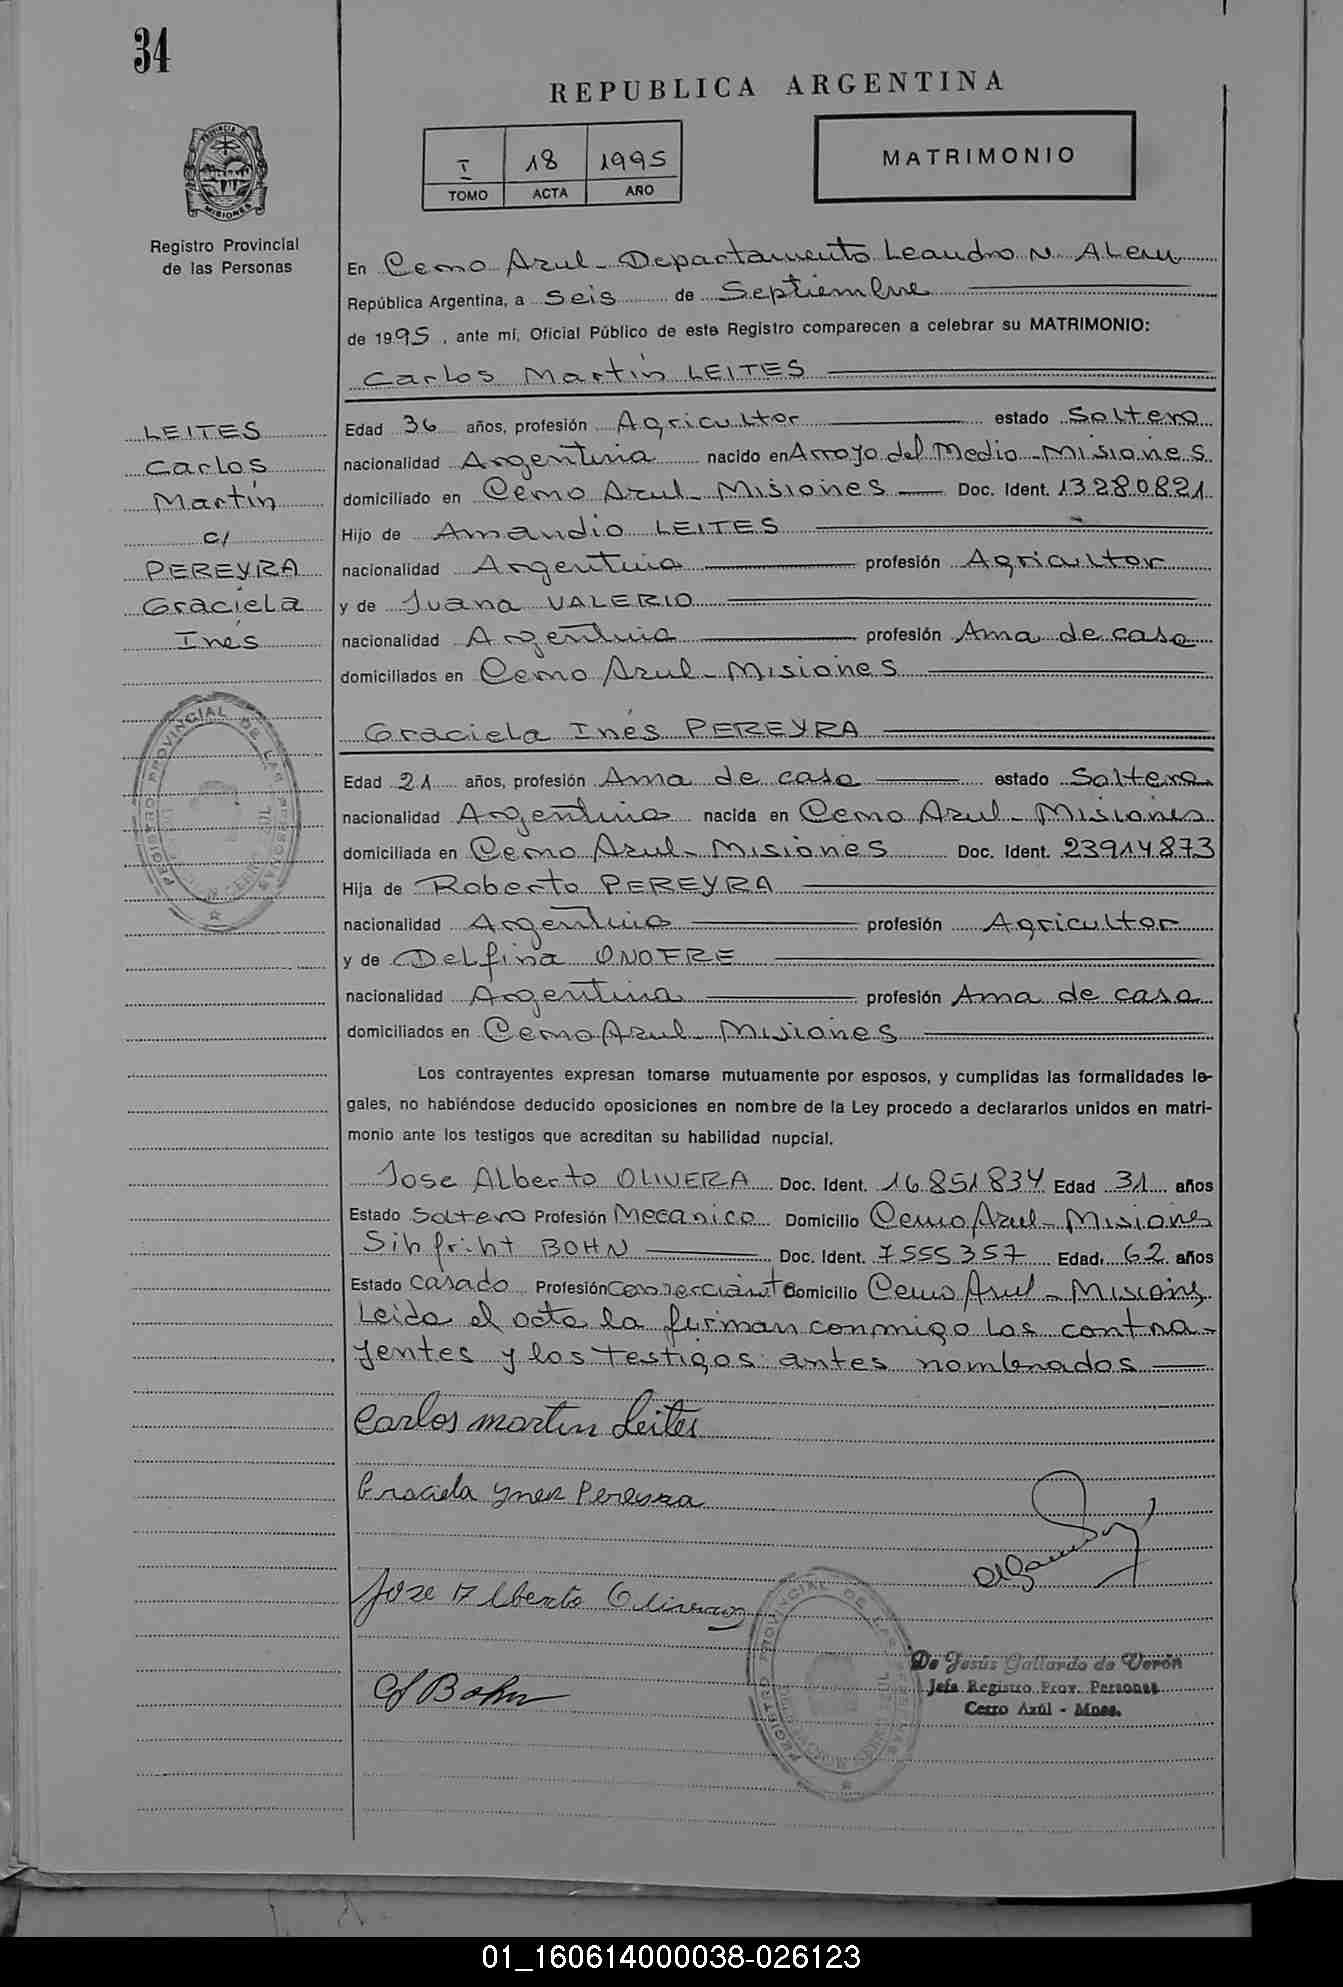 34
REPUBLICA ARGENTINA
I 18 1995
TOMO ACTA AÑO
MATRIMONIO
PROVINCIA DE
MISIONES
Registro Provincial
de las Personas
En Cerro Azul - Departamento Leandro N. ALem
República Argentina, a Seis de Septiembre
de 1995, ante mí, Oficial Público de este Registro comparecen a celebrar su MATRIMONIO:
Carlos Martín LEITES
LEITES
Carlos
Martín
c/
PEREYRA
Graciela
Inés
Edad 36 años, profesión Agricultor estado Soltero
nacionalidad Argentina nacido en Arroyo del Medio - Misiones
domiciliado en Cerro Azul - Misiones Doc. Ident. 13280821
Hijo de Amandio LEITES
nacionalidad Argentina profesión Agricultor
y de Juana VALERIO
nacionalidad Argentina profesión Ama de casa
domiciliados en Cerro Azul - Misiones
Graciela Inés PEREYRA
Edad 21 años, profesión Ama de casa estado Soltera
nacionalidad Argentina nacida en Cerro Azul - Misiones
domiciliada en Cerro Azul - Misiones Doc. Ident. 23914873
Hija de Roberto PEREYRA
nacionalidad Argentina profesión Agricultor
y de Delfina ONOFRE
nacionalidad Argentina profesión Ama de casa
domiciliados en Cerro Azul - Misiones
Los contrayentes expresan tomarse mutuamente por esposos, y cumplidas las formalidades le-
gales, no habiéndose deducido oposiciones en nombre de la Ley procedo a declararlos unidos en matri-
monio ante los testigos que acreditan su habilidad nupcial.
Jose Alberto OLIVERA Doc. Ident. 16.851834 Edad 31 años
Estado Soltero Profesión Mecanico Domicilio Cerro Azul - Misiones
Sihfriht BOHN Doc. Ident. 7555357 Edad 62 años
Estado casado Profesión Comerciante Domicilio Cerro Azul - Misiones
Leida el acta la firman conmigo los contra-
yentes y los testigos antes nombrados
Carlos martin Leites
Graciela Ynez Pereyra
Joze Alberto Olivera
S Bohn
REGISTRO PROVINCIAL DE LAS PERSONAS
De Jesús Gallardo de Verón
Jefa Registro Prov. Personas
Cerro Azúl - Mnes.
01_160614000038-026123